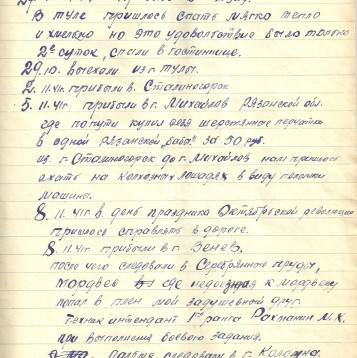 В туле пришлось спать мягко тепло
и хмельно но это удовольствие было только
2е суток, спали в гостиннице.
29.10. выехали из г Тулы.
2. 11.41г. прибыли в. Сталиногорск
5. 11.41г прибыли в г. Михайлов Рязанской обл.
где по пути купил себе шерстяные перчатки
в одной рязанской "бабы" за 50 руб.
из г Сталиногорск до г. Михайлов нам пришлось
ехать на колхозных лошадях в виду поломки
машины.
8. 11. 41г. в день праздника Октябрьской революции
пришлось справлять в дороге.
8. 11. 41г прибыли в г. Венев.
после чего следовали в Серебрянные пруды,
Мордвес где недоезжая к мордвесу
попал в плен мой задушевный друг
техник интендант 1го ранга Рахманин М. К.
при выполнении боевого задания.
дальше следовали в г Коломна.